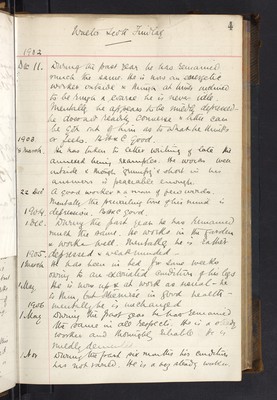 4
Walter Scott Findlay
1902
Dec 11. During the past year he has remained
much the same. He is now an energetic
worker outside & though at times inclined
to be rough & coarse he is never idle.
Mentally he appears to be mildly depressed
he does not readily converse & little can
be got out of him as to what he thinks
1903 or feels. B. H. is Good.
He has taken to letter writing of late the
annexed being examples. He works well
outside & though grumpy & short in his
manners is amenable enough.
22 Oct A good worker & a man of few words
Mentally the prevailing tone of his mind is
1904 depression. B.H. is good.
1 Dec. During the past year he has remained
much the same. He works in the garden
& works well. Mentally he is rather
1905 depressed & weak minded.
1 March. He has been in bed for some weeks
owing to an condition of his legs
1 May He is now up & at work as usual - he
is thin, but otherwise in good health -
1906 mentally he is unchanged
1 May During the past year he has remained
the same in all respects. He is a steady
worker and thoroughly reliable. He is
mildly
1 Nov During the past six months his condition
has not varied. He is a